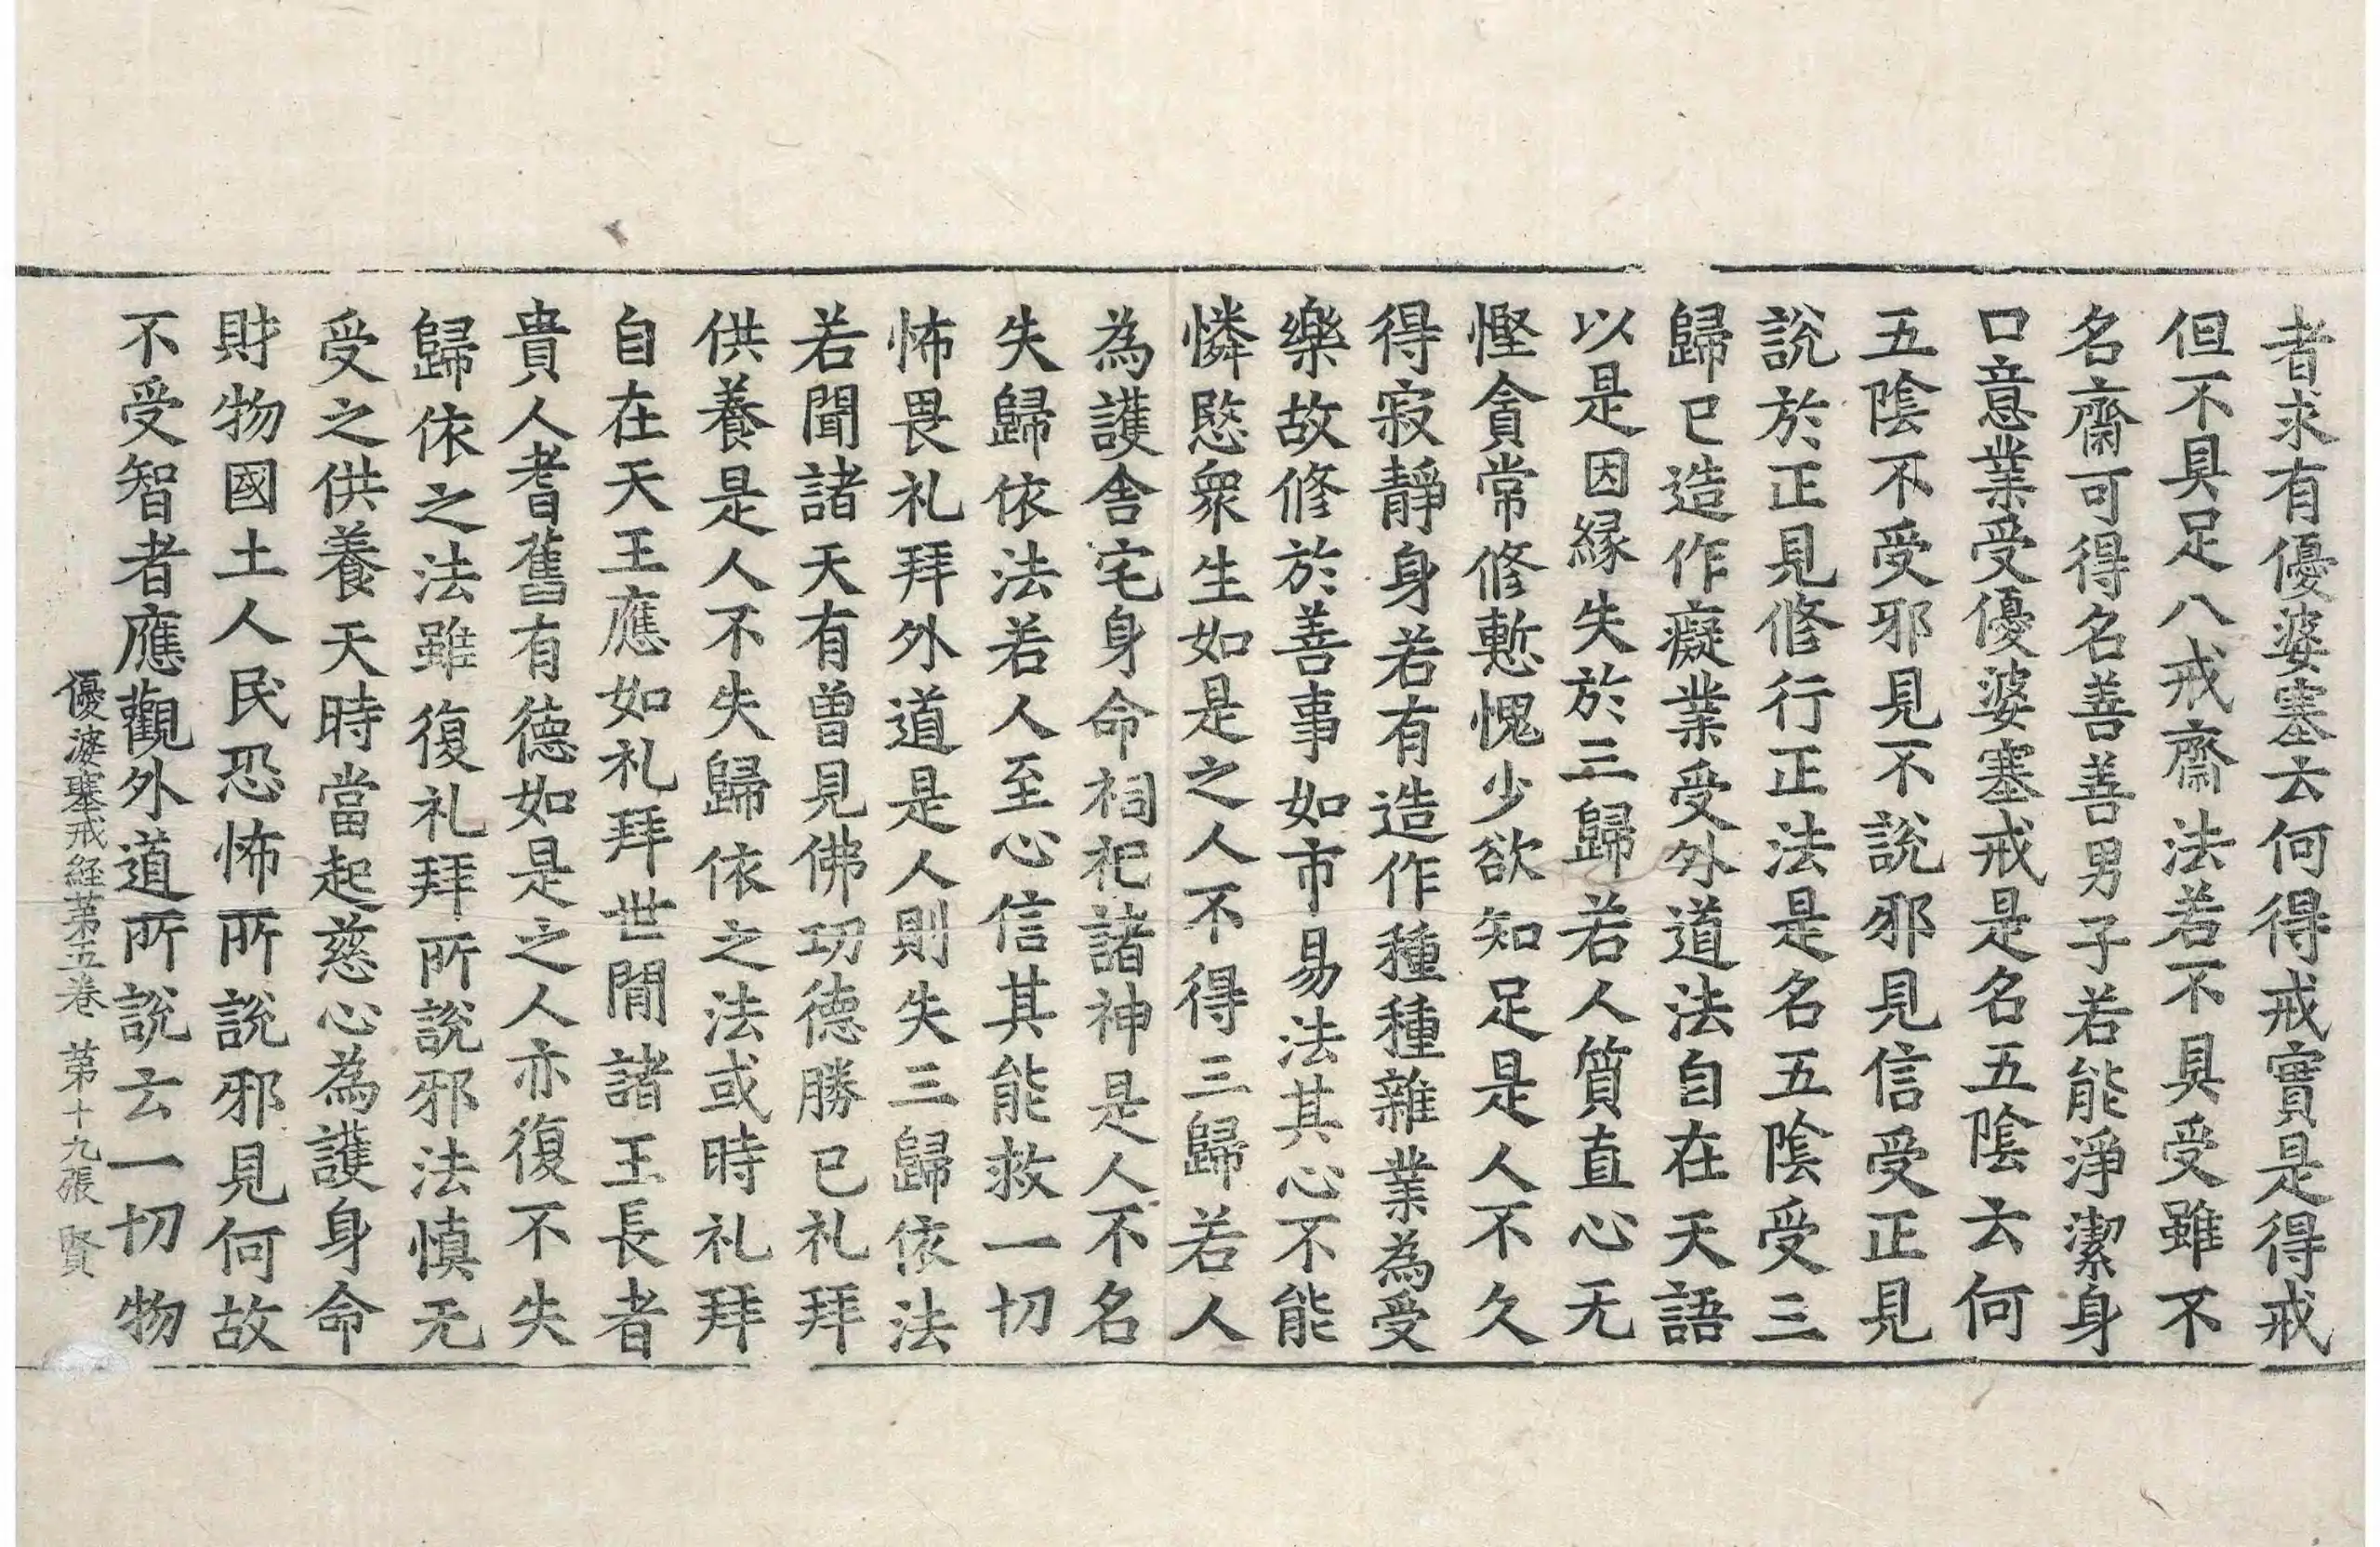 者求有優婆塞云何得戒實是得戒
但不具足八戒齋法若不具受雖不
名齋可得名善善男子若能淨潔身
口意業受優婆塞戒是名五陰云何
五陰不受邪見不說邪見信受正見
說於正見修行正法是名五陰受三
歸已造作癡業受外道法自在天語
以是因緣失於三歸若人質直心无
慳貪常修慙愧少欲知足是人不久
得寂靜身若有造作種種雜業為受
樂故修於善事如市易法其心不能
憐愍衆生如是之人不得三歸若人
為護舍宅身命祠祀諸神是人不名
失歸依法若人至心信其能救一切
怖畏礼拜外道是人則失三歸依法
若聞諸天有曾見佛功德勝已礼拜
供養是人不失歸依之法或時礼拜
自在天王應如礼拜世間諸王長者
貴人耆舊有德如是之人亦復不失
歸依之法雖復礼拜所說邪法慎无
受之供養天時當起慈心為護身命
財物國土人民恐怖所說邪見何故
不受智者應觀外道所說云一切物
優婆塞戒經第五卷 第十九張 賢